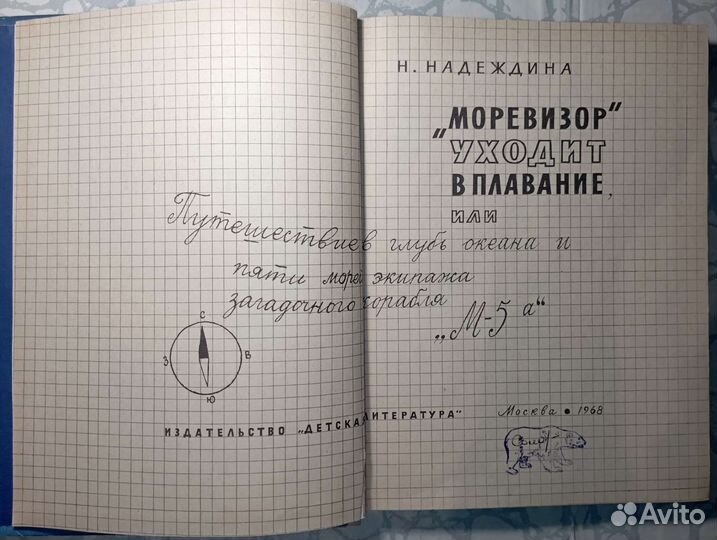 Н. НАДЕЖДИНА
„МОРЕВИЗОР“
УХОДИТ
В ПЛАВАНИЕ,
ИЛИ
Путешествие в глубь океана и
пяти морей экипажа
загадочного корабля
„М-5а“
С
З В
Ю
ИЗДАТЕЛЬСТВО „ДЕТСКАЯ ЛИТЕРАТУРА“
Москва • 1968
Avito